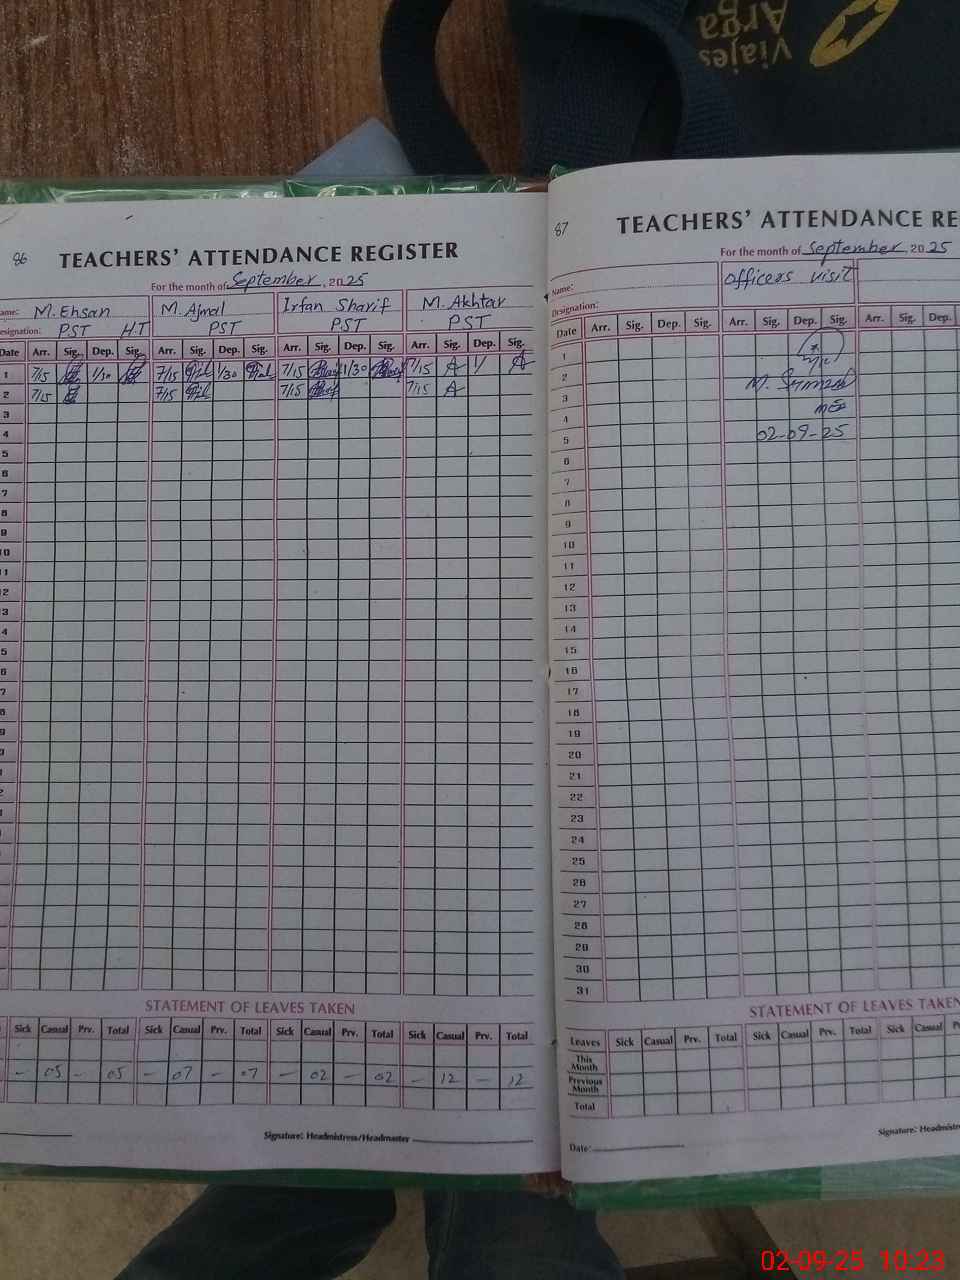 Viajes
Arga
86
TEACHERS' ATTENDANCE REGISTER
For the month of September, 2025
ame: M. Ehsan M. Ajmal Irfan Sharif M. Akhtar
esignation: PST H.T PST PST PST
Date Arr. Sig. Dep. Sig. Arr. Sig. Dep. Sig. Arr. Sig. Dep. Sig. Arr. Sig. Dep. Sig.
1 7/15 1/30 7/15 1/30 7/15 1/30 7/15 A 1/ A
2 7/15 7/15 7/15 7/15 A
3
4
5
6
7
8
9
10
11
12
13
4
5
6
7
8
9
STATEMENT OF LEAVES TAKEN
Sick Casual Prv. Total Sick Casual Prv. Total Sick Casual Prv. Total Sick Casual Prv. Total
- 05 - 05 - 07 - 07 - 02 - 02 - 12 - 12
Signature: Headmistress/Headmaster
87
TEACHERS' ATTENDANCE RE
For the month of September, 2025
Name: officers visit
Designation:
Date Arr. Sig. Dep. Sig. Arr. Sig. Dep. Sig. Arr. Sig. Dep.
1
2
3
4
5 02-09-25
6
7
8
9
10
11
12
13
14
15
16
17
18
19
20
21
22
23
24
25
26
27
28
29
30
31
STATEMENT OF LEAVES TAKEN
Leaves Sick Casual Prv. Total Sick Casual Prv. Total Sick Casual
This Month
Previous Month
Total
Signature: Headmistre
Date:
02-09-25 10:23